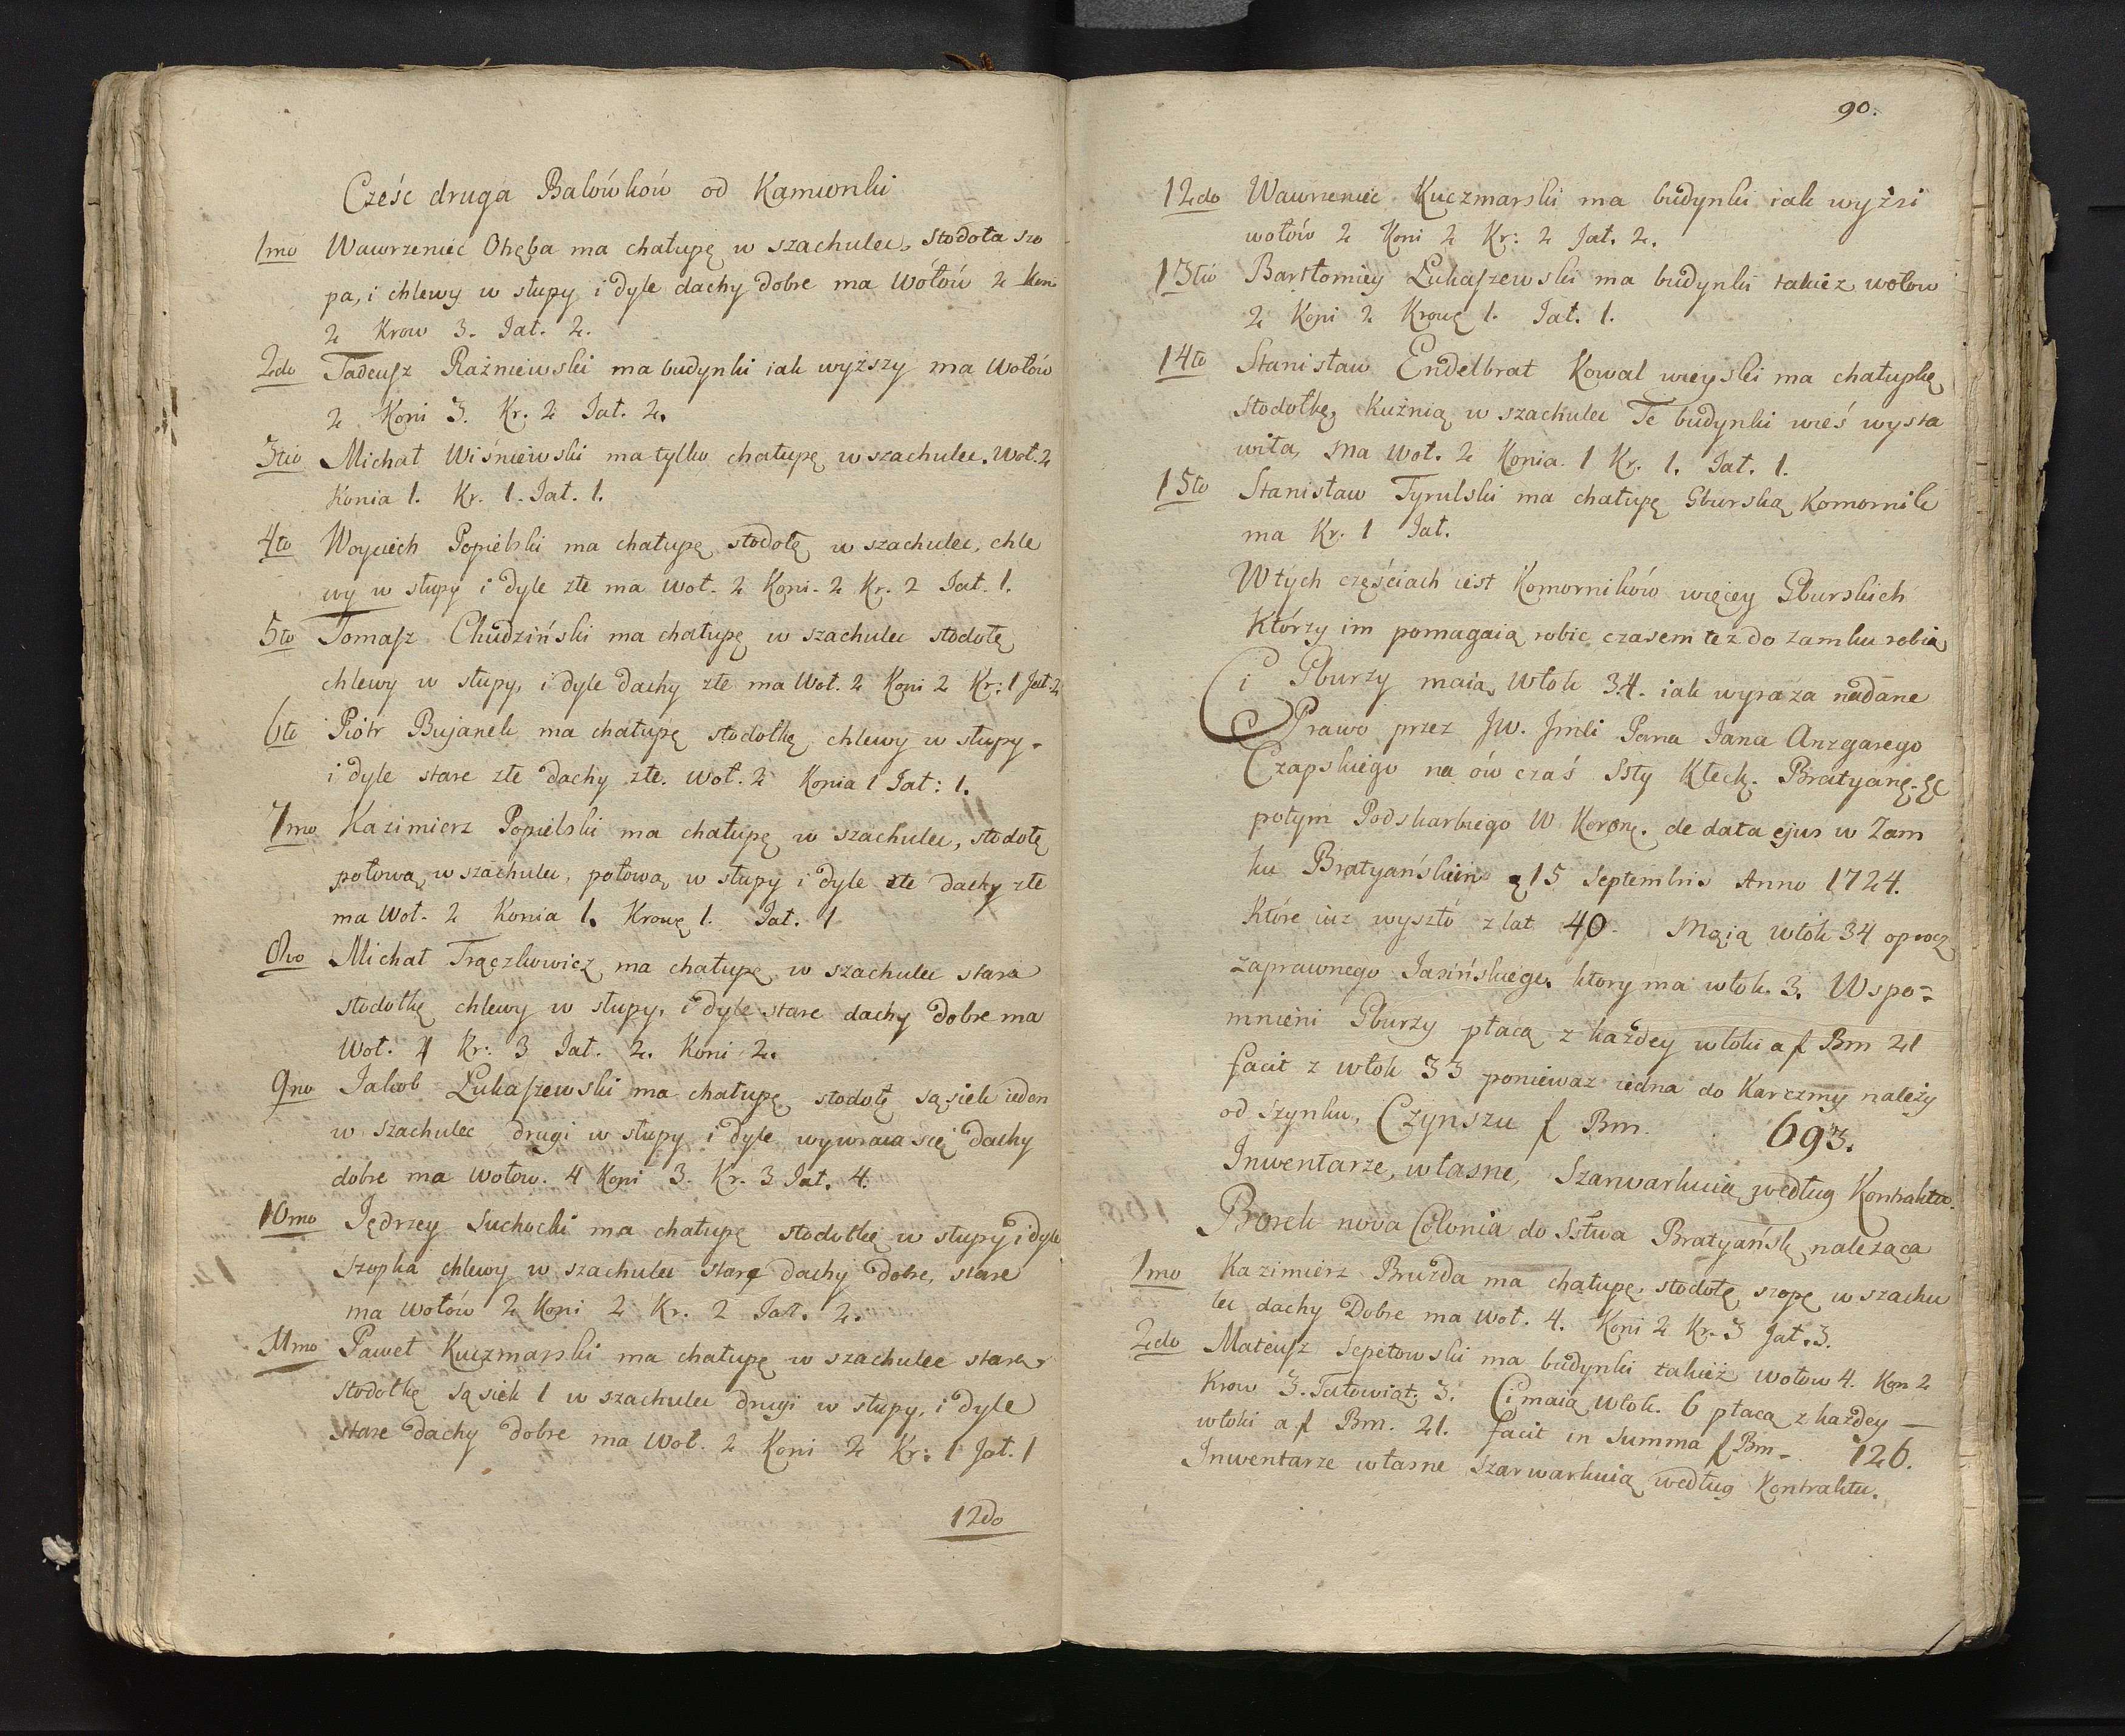 Cześc druga Bałówków od Kamionki
1mo Wawrzeniec Otręba ma chałupę w szachulec, Stodoła szo
pa, i chlewy w słupy i dyle dachy dobre ma Wółów 2 koni
2 Krow 3. Jał. 2.
2do Tadeusz Raźniewski ma budynki iak wyższy ma Wołów
2 Koni 3. Kr. 2 Jał. 2.
3tio Michał Wiśniewski ma tylko chałupę w szachulec. Woł. 2
Konia 1. Kr. 1. Jał. 1.
4to Woyciech Popielski ma chałupę stodołę w szachulec, chle
wy w słupy i dyle złe ma woł. 2 Koni. 2 Kr. 2 Jał. 1.
5to Tomasz Chudziński ma chałupę w szachulec stodołę
chlewy w słupy, i dyle dachy złe ma Woł. 2 Koni 2 Kr: 1 Jał. 2
6to Piotr Bujanek ma chałupę stodołkę chlewy w słupy.
i dyle stare złe dachy złe. Woł. 2 Konia 1 Jał: 1.
7mo Kazimierz Popielski ma chałupę w szachulec, stodołę
połową w szachulec, połową w słupy i dyle złe dachy złe
ma Woł. 2 Konia 1. Krowę 1. Jał. 1
8vo Michał Trączkowicz ma chałupę w szachulec stara
stodołkę chlewy w słupy, i dyle stare dachy dobre ma
Woł. 4 Kr: 3 Jał. 2. Koni 2.
9no Jakob Łukaszewski ma chałupę stodołę sąsiek ieden
w szachulec drugi w słupy i dyle wywraca się dachy
dobre ma wołow. 4 Koni 3. Kr. 3 Jał. 4.
10mo Jędrzey Suchocki ma chałupę stodołkę w słupy i dyle
Szopka chlewy w szachulec stare dachy dobre, stare
ma wołów 2 Koni 2 Kr. 2 Jał. 2.
11mo Paweł Kuczmarski ma chałupę w szachulec stara
stodołkę sąsiek 1 w szachulec drugi w słupy, i dyle
stare dachy dobre ma Woł. 2 Koni 2 Kr: 1 Jał. 1
12do
90.
12do Wawrzeniec Kuczmarski ma budynki iak wyżsi
wołów 2 Koni 2 Kr: 2 Jał. 2.
13tio Barsłomiey Łukaszewski ma budynki takiez wołow
2 Koni 2 Krowę 1. Jał. 1.
14to Stanisław Endelbrat Kowal wieyski ma chałupkę
stodołkę, Kuźnią w szachulec Te budynki wieś wysta
wiła, Ma woł. 2 Konia. 1 Kr. 1. Jał. 1.
15to Stanisław Tyrulski ma chałupę Gburską Komornik
ma Kr. 1 Jał.
W tych częściach iest Komorników więcey Gburskich
Którzy im pomagaią robic czasem tez do zamku robią
Ci Gburzy maią Włok 34. iak wyraza nadane
Prawo przez JW. Jmći Pana Jana Anzgarego
Czapskiego na ów czaś Ssty Kłeck. Bratyanę. &c
potym Podskarbiego W. Koronę. de data ejus w Zam
ku Bratyańskim 15 Septembris Anno 1724.
Które iuz wyszło z lat 40. Maią włók 34 oprocz
zaprawnego Jasińskiego, ktory ma włok. 3. Wspo=
mnieni Gburzy płacą z każdey włoki a f Bm 21
facit z włok 33 poniewaz iedna do Karczmy należy
od szynku, Czynszu f Bm. 693.
Inwentarze, własne, Szarwarkuią według Kontraktu.
Borek nova Colonia do Sstwa Bratyańsk. nalezaca
1mo Kazimierz Bruzda ma chałupę, stodołę szopę w szachu
lec dachy Dobre ma Woł. 4. Koni 2 Kr. 3 Jał. 3.
2do Mateusz Sepełowski ma budynki takież wołow 4. Kon 2
Krow 3. Jałowiąt. 3. Ci maią Włok. 6 płacą z każdey —
włoki a f Bm. 21. facit in Summa f Bm. 126.
Inwentarze własne szarwarkuią według Kontraktu.